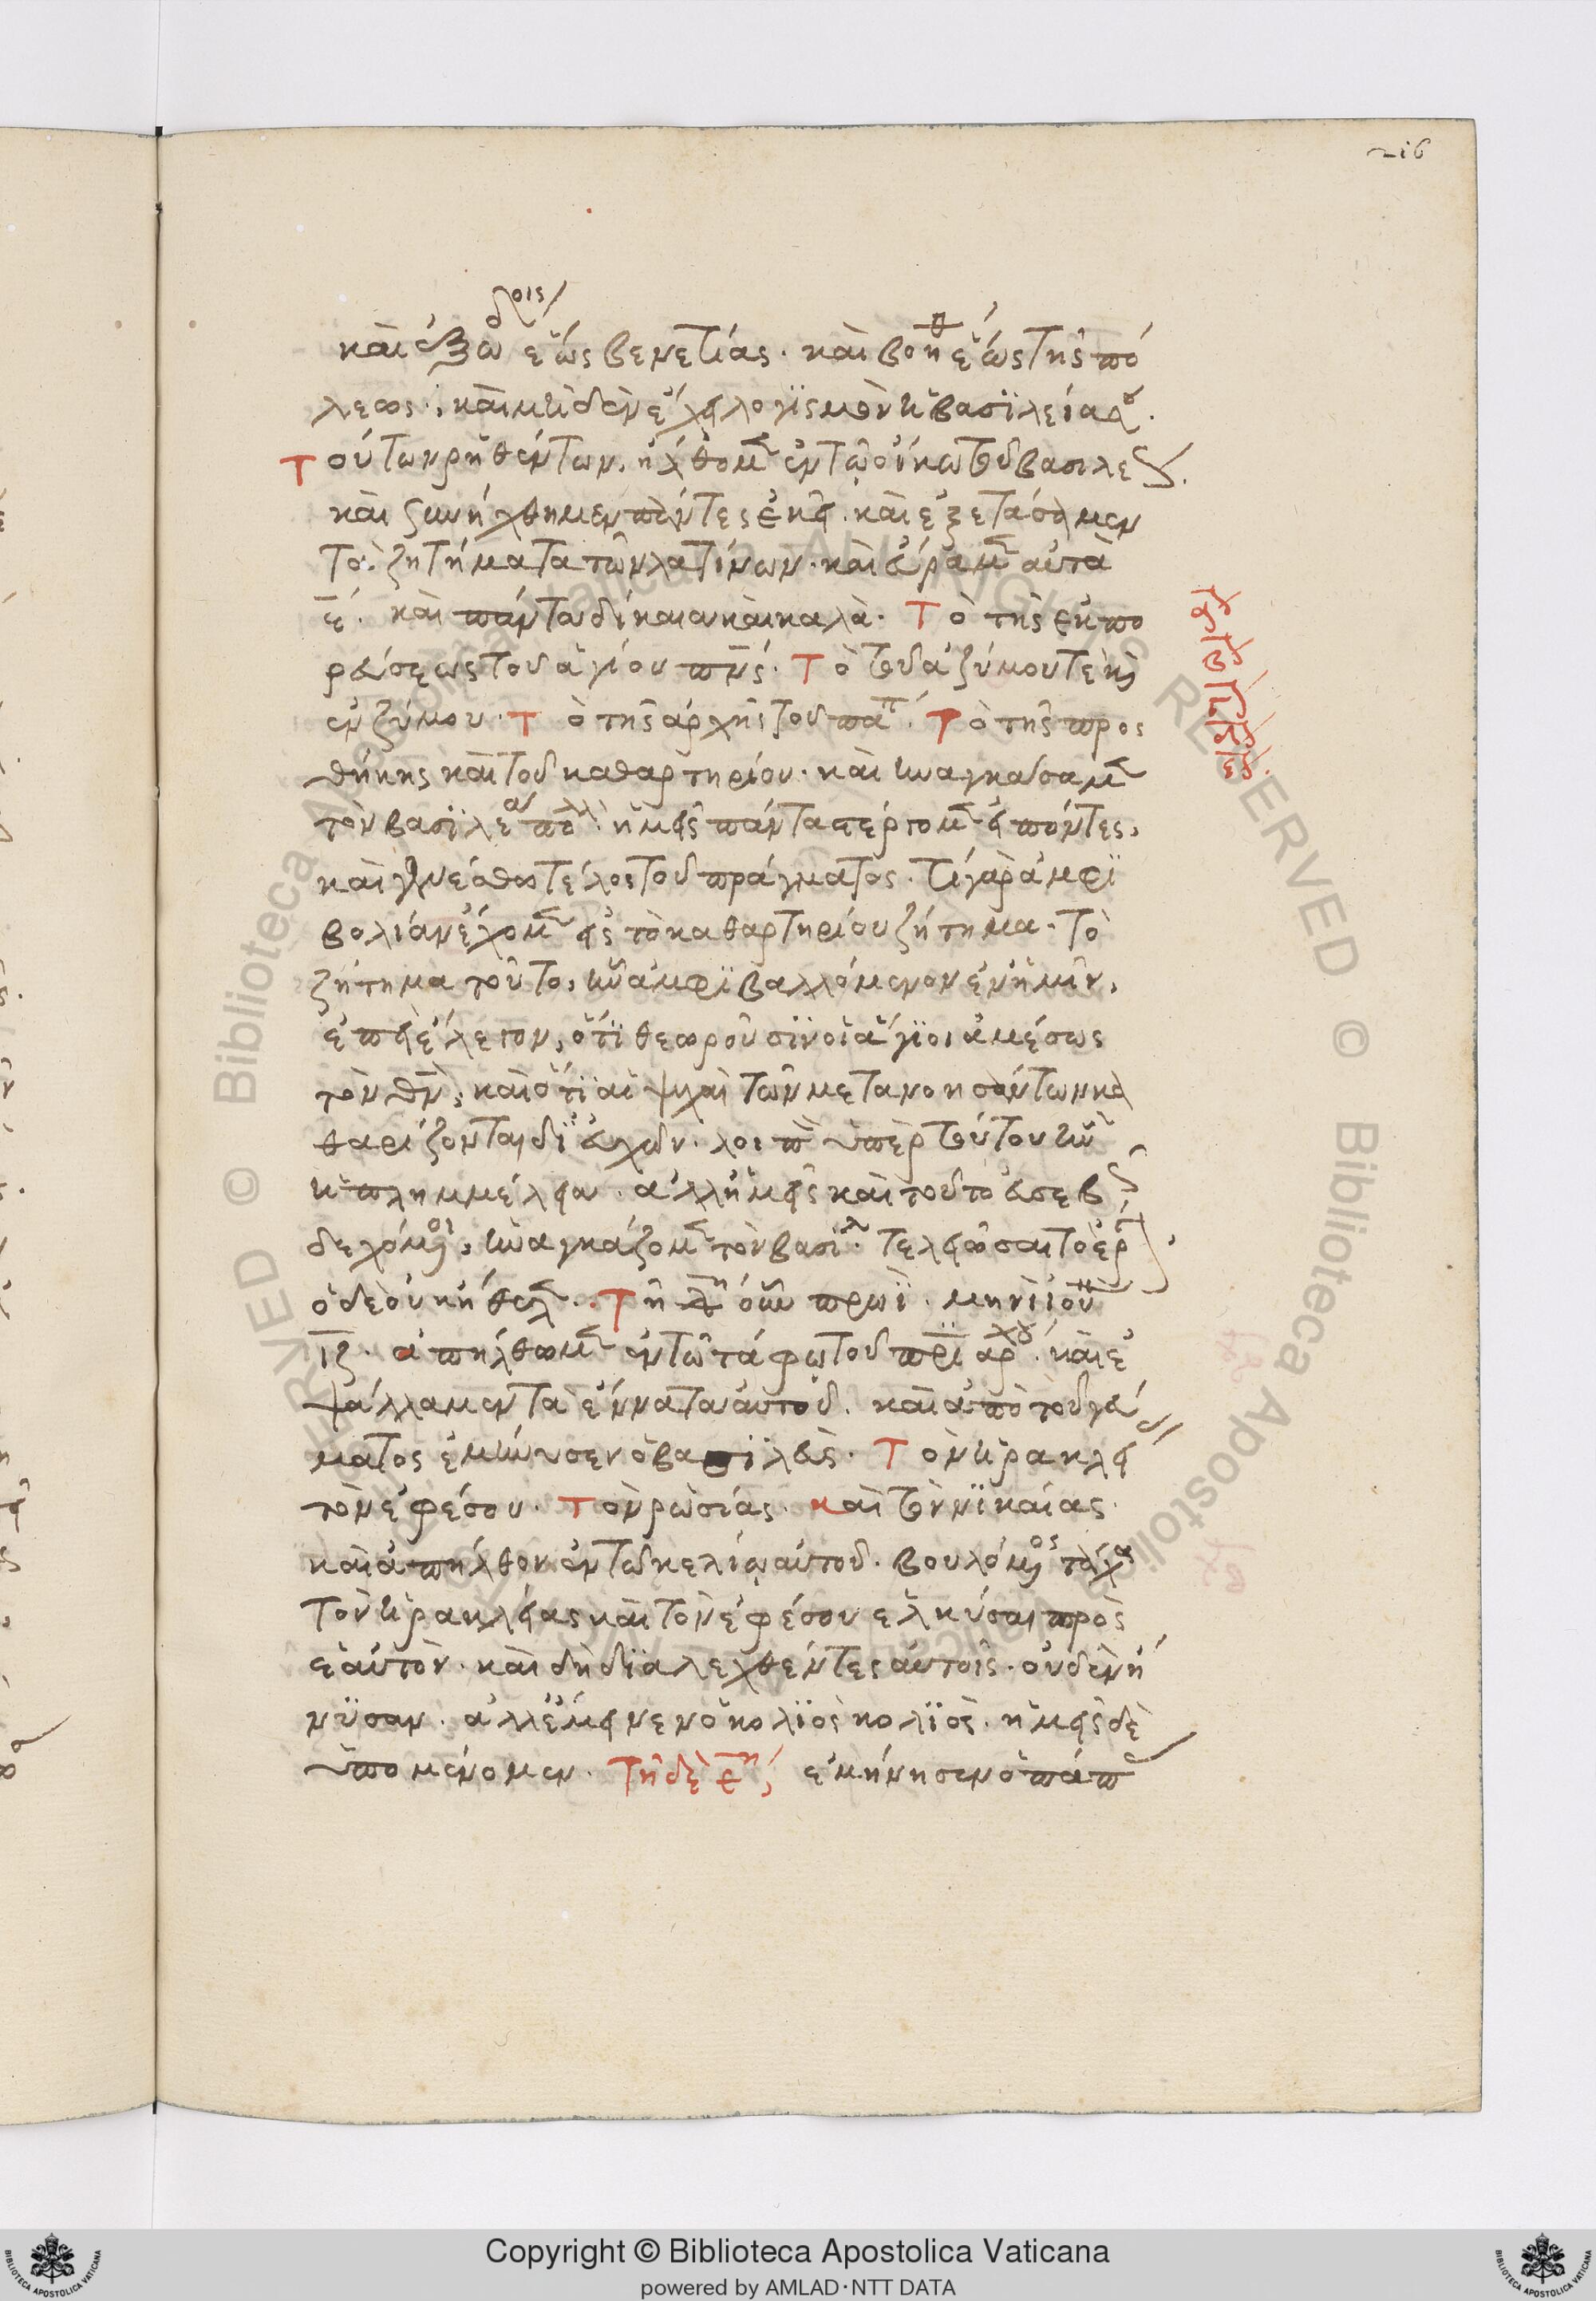 216
δροις
καὶ ἐξω ἕως βενετίας. καὶ βοηθ ἕως τῆς πό
λεως. καὶ μηδὲν ἔχει λογισμὸν ἡ βασιλεία σου.
Τούτων ῥηθέντων, ἤλθομεν ἐν τῷ οἴκω τοῦ βασιλέως.
καὶ συνήχθημεν πάντες ἐκεῖ. καὶ ἐξετάσαμεν
τὰ ζητήματα τῶν λατίνων. καὶ εὕραμεν αὐτὰ
ε. καὶ πάντα δίκαια καὶ καλὰ. Τὸ τῆς ἐκπο
ρεύσεως τοῦ ἁγίου πνς. Τὸ τοῦ ἀζύμου τε καὶ
ἐνζύμου. Τὸ τῆς ἀρχῆς τοῦ παπ. Τὸ τῆς προσ
θήκης καὶ τοῦ καθαρτηρίου. καὶ ἠναγκάσαμεν
τὸν βασιλέα πολλὰ. ἡμεῖς πάντα στέργομεν εἰπόντες,
καὶ γενέσθω τέλος τοῦ πράγματος. τί γὰρ ἀμφι
βολίαν ἔχομεν εἰς τὸ καθαρτηρίου ζήτημα. τὸ
ζήτημα τοῦτο, ἦν ἀμφιβαλλόμενον ἐν ἡμῖν,
ἐπεὶ ἔλεγον, ὅτι θεωροῦσιν οἱ ἅγιοι ἀμέσως
τὸν θν, καὶ ὅτι αἱ ψυχαὶ τῶν μετανοησάντων κα
θαρίζονται δι εὐχῶν. λοιπὸν ὑπὲρ τούτου ἦν
ἡ πλημμέλεια. ἀλλ ἡμεῖς καὶ τοῦτο εὐσεβῶς
δεχόμενοι, ἠναγκάζομεν τὸν βασιλ. τελειῶσαι τὸ ἔργον.
ὁ δὲ οὐκ ἤθελεν. Τῆ δη οὖν πρωῒ. μηνὶ ἰουν
ιζ. ἀπήλθωμεν ἐν τῶ τάφω τοῦ πριάρχου. καὶ ἐ
ψάλλαμεν τὰ ἔννατα αὐτοῦ. καὶ ἀπὸ τοῦ γεύ
ματος ἐμήνυσεν ὁ βασιλεὺς. Τὸν ἡρακλεί
τὸν ἐφέσου. Τὸν ῥωσίας. καὶ τὸν νικαίας.
καὶ ἀπῆλθον ἐν τῶ κελίω αὐτοῦ. βουλόμενος τάχα
τὸν ἡρακλείας καὶ τὸν ἐφέσου ἑλκύσαι πρὸς
ἑαυτὸν. καὶ δὴ διαλεχθέντες αὐτοῖς. οὐδὲν ἤ
νυσαν. ἀλλ ἔμεινεν ὁ κολιὸς κολιὸς. ἡμεῖς δὲ
ὑπομένομεν. Τῆ δὲ εη, ἐμήνησεν ὁ πάπας